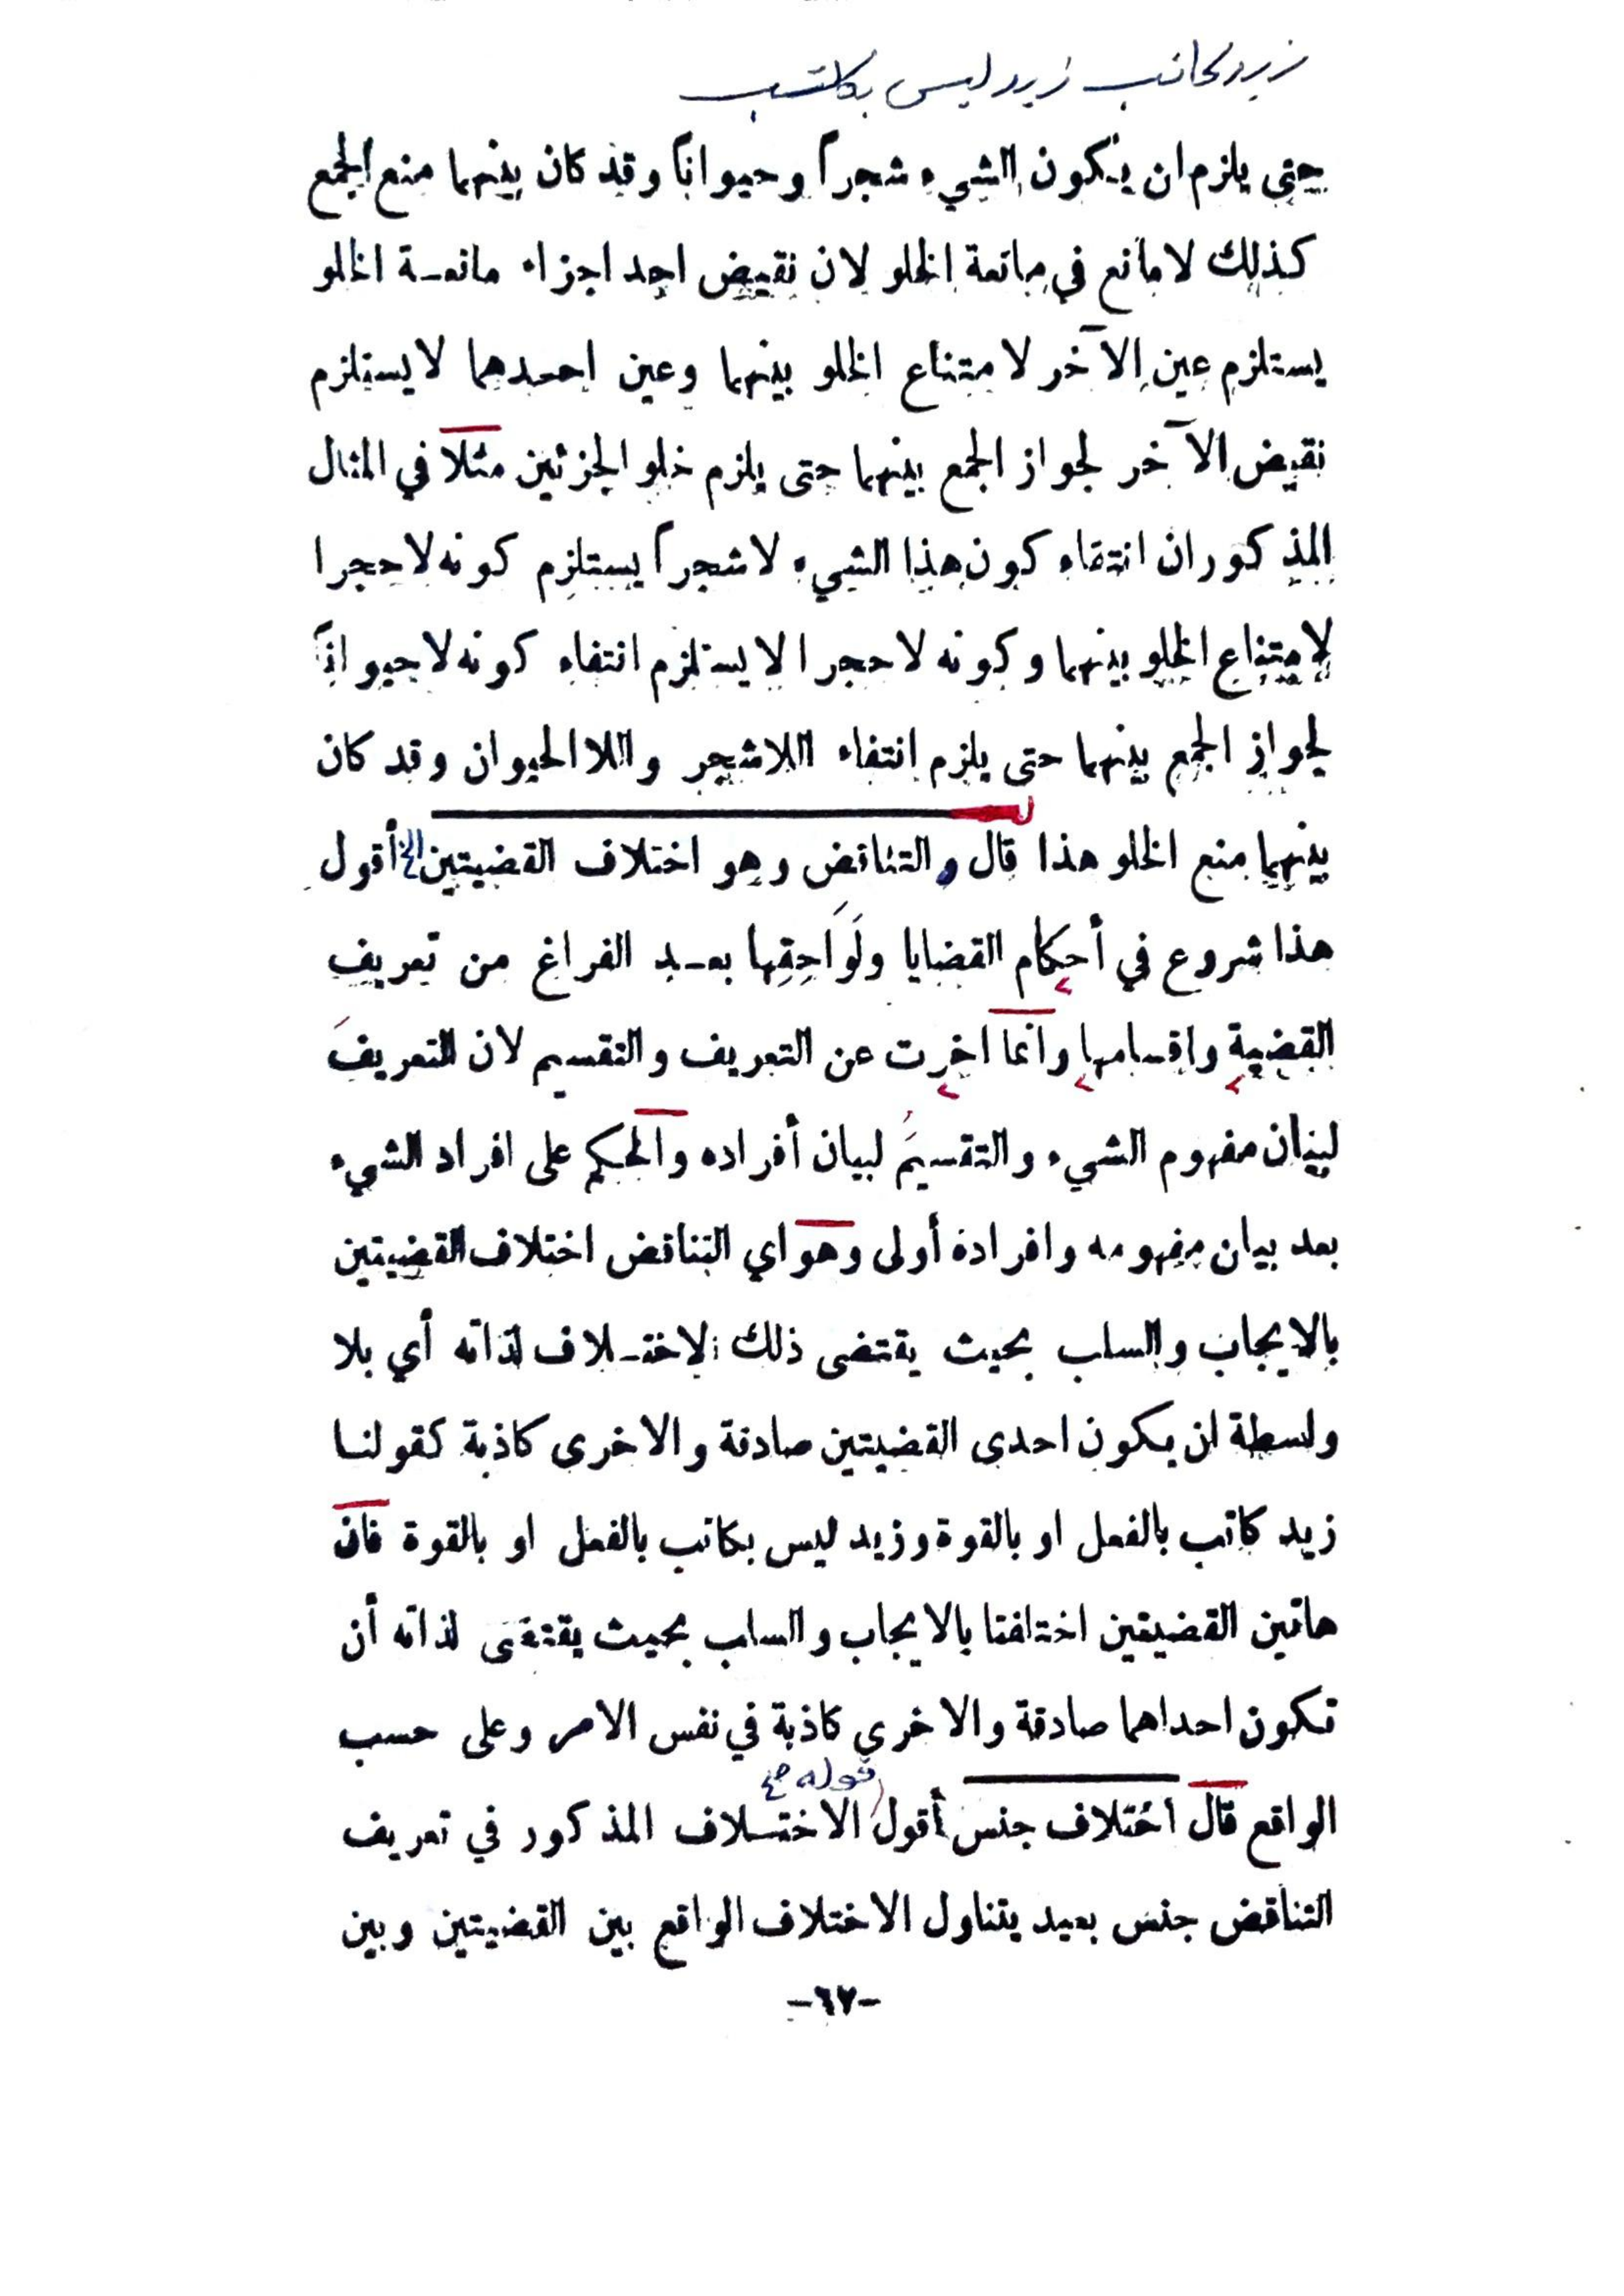 زيد كاتب زيد ليس بكاتب
حتى يلزم ان يكون الشيء شجراً وحيواناً وقد كان بينهما منع الجمع
كذلك لا مانع في مانعة الخلو لان نقيض احد اجزاء مانعـة الخلو
يستلزم عين الآخر لامتناع الخلو بينهما وعين احدهما لا يستلزم
نقيض الآخر لجواز الجمع بينهما حتى يلزم خلو الجزئين مثلا في المثال
المذكور ان انتفاء كون هذا الشيء لاشجراً يستلزم كونه لاحجرا
لامتناع الخلو بينهما وكونه لاحجرا لا يستلزم انتفاء كونه لاحيواناً
لجواز الجمع بينهما حتى يلزم انتفاء اللاشجر واللا الحيوان وقد كان
بينهما منع الخلو هذا قال والتناقض وهو اختلاف القضيتين الخ أقول
هذا شروع في أحكام القضايا ولَوَاحِقِها بعـد الفراغ من تعريف
القضية واقسامها وانما اخرت عن التعريف والتقسيم لان التعريفَ
لبيان مفهوم الشيء والتقسيمَ لبيان أفراده والحكم على افراد الشيء
بعد بيان مفهومه وافراده أولى وهو اي التناقض اختلاف القضيتين
بالايجاب والسلب بحيث يقتضى ذلك الاختـلاف لذاته أي بلا
واسطة ان يكون احدى القضيتين صادقة والاخرى كاذبة كقولنـا
زيد كاتب بالفعل او بالقوة وزيد ليس بكاتب بالفعل او بالقوة فان
هاتين القضيتين اختلفتا بالايجاب والسلب بحيث يقتضى لذاته أن
تكون احداهما صادقة والاخرى كاذبة في نفس الامر وعلى حسب
قوله
الواقع قال اختلاف جنس أقول الاختـلاف المذكور في تعريف
التناقض جنس بعيد يتناول الاختلاف الواقع بين القضيتين وبين
-٦٧-